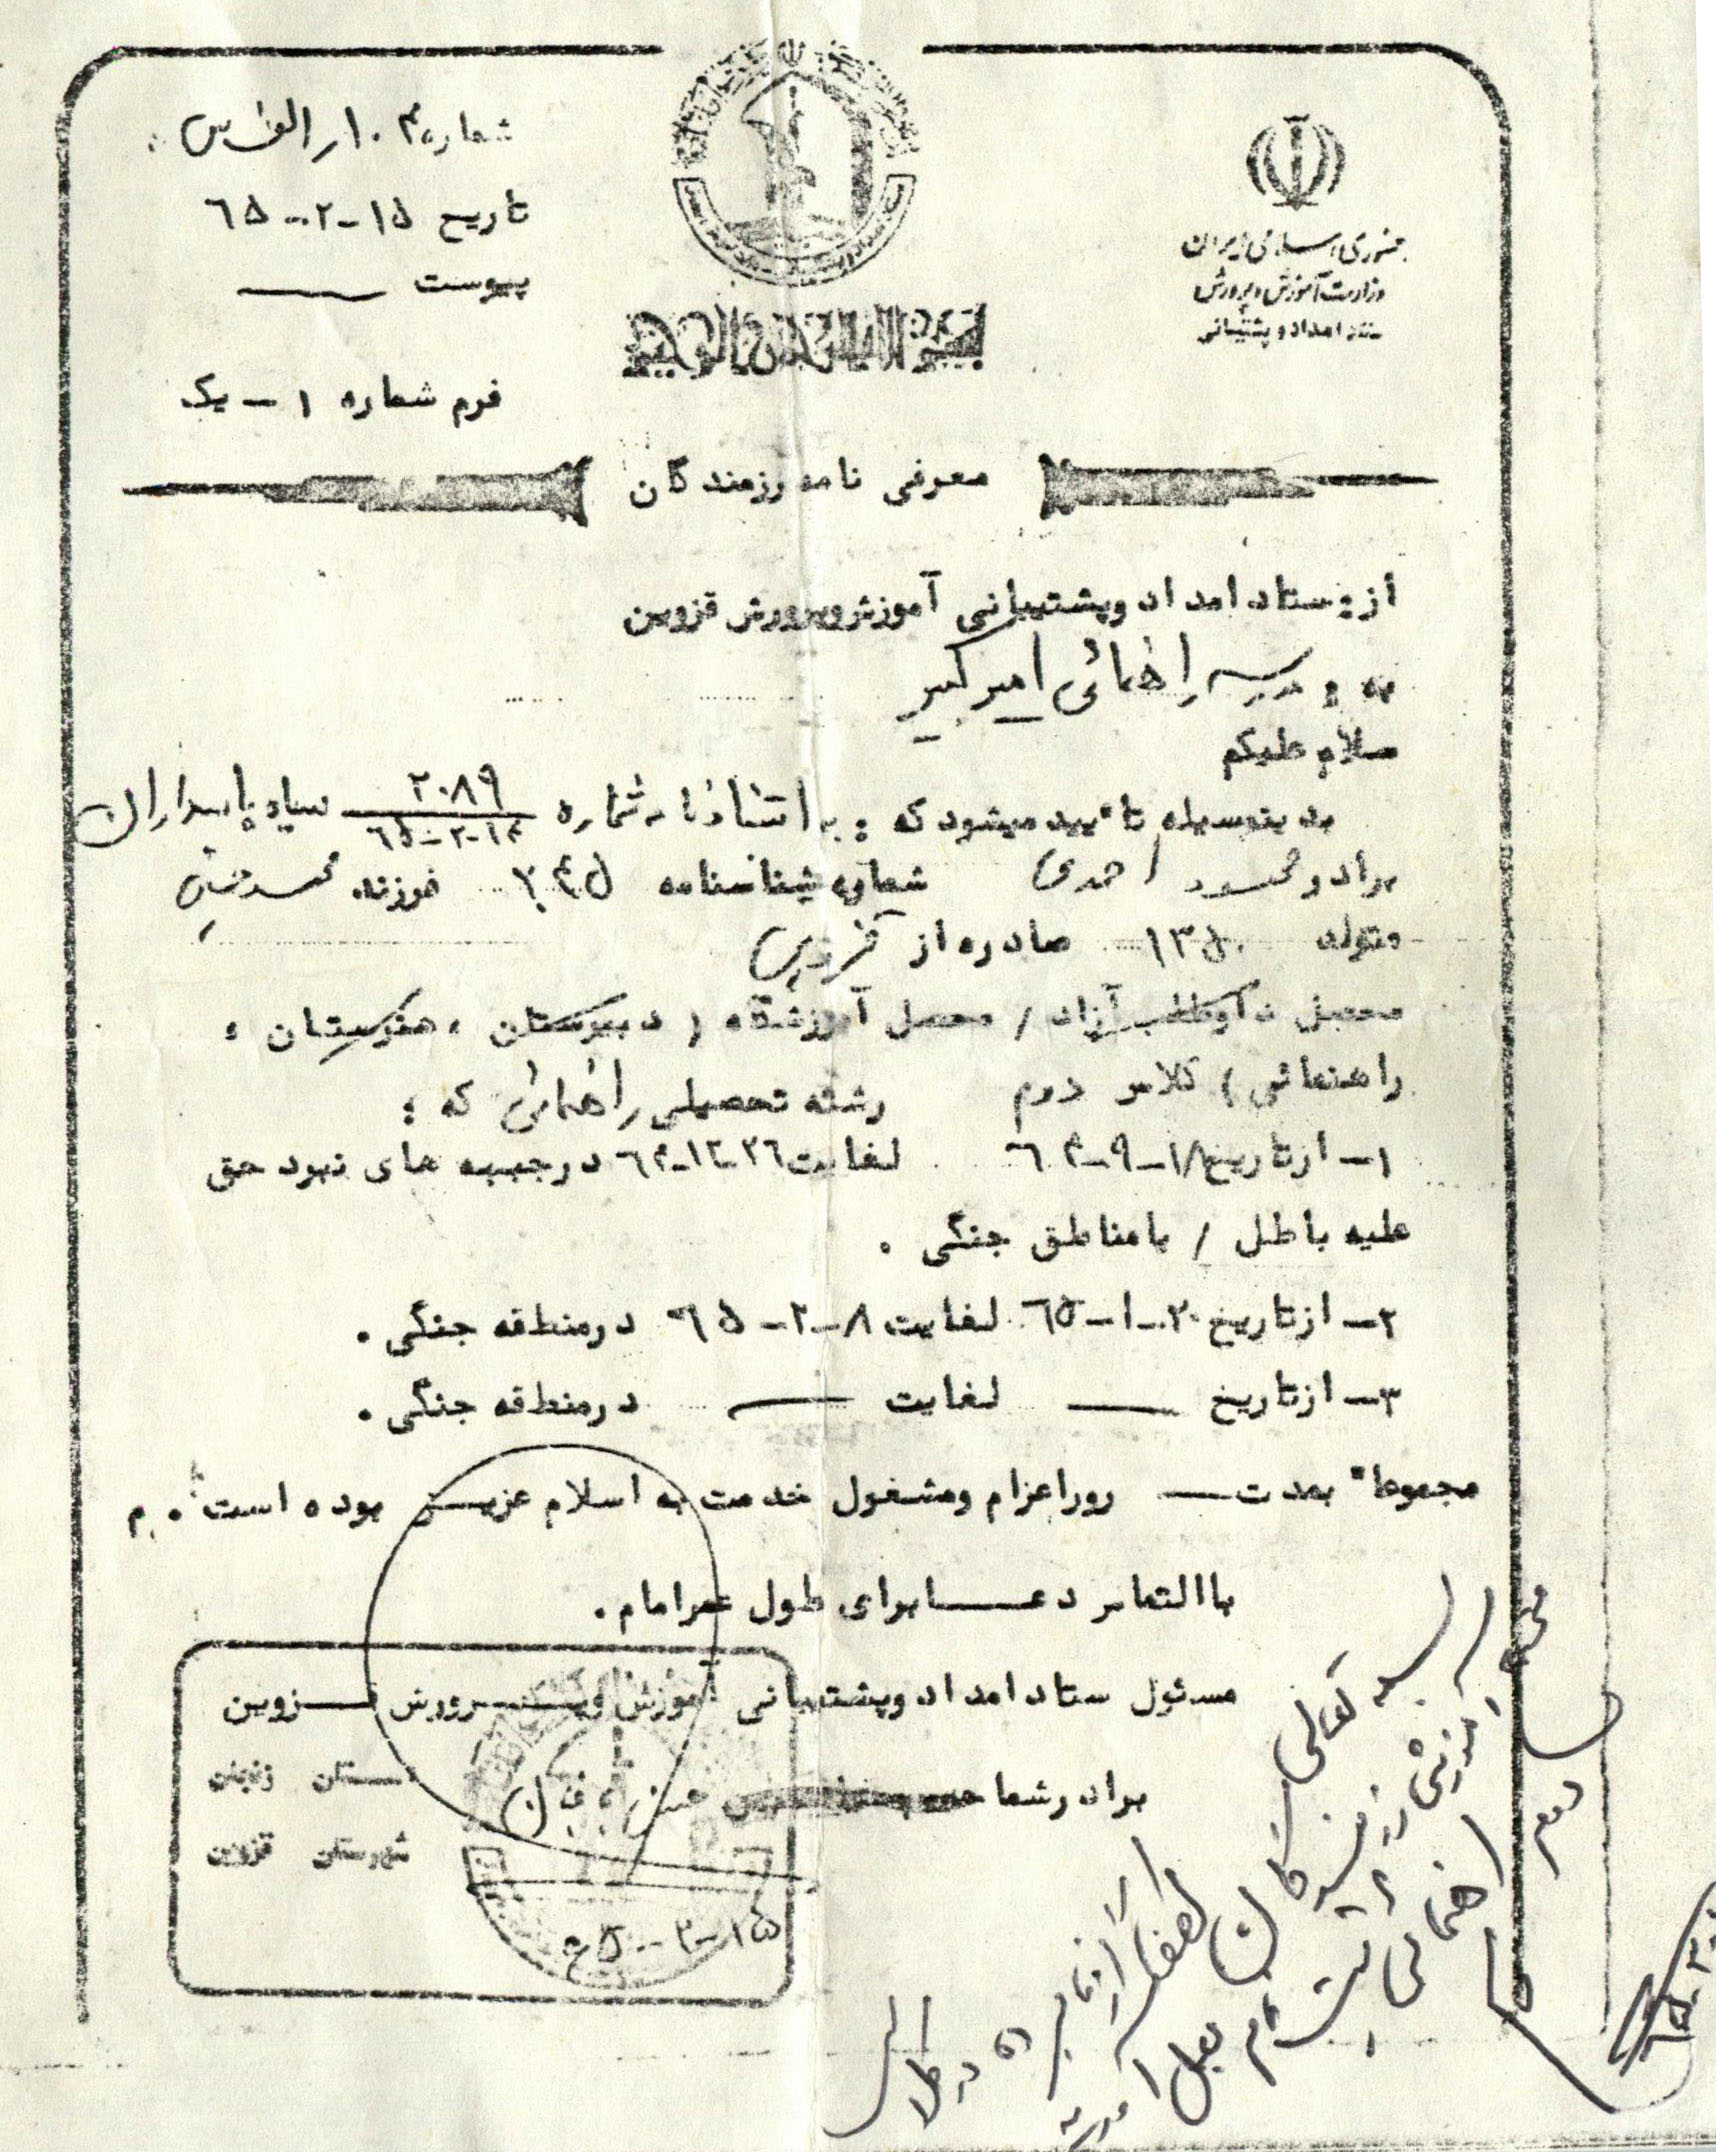 جمهوری اسلامی ایران
وزارت آموزش و پرورش
ستاد امداد و پشتیبانی
بسم الله الرحمن الرحیم
شماره ۱۰۴ر الف س
تاریخ ۱۵-۲-۶۵
پیوست
فرم شماره ۱ - یک
معرفی نامه رزمندگان
از: ستاد امداد و پشتیبانی آموزش و پرورش قزوین
به: مدرسه راهنمائی امیر کبیر
سلام علیکم
بدینوسیله تأیید میشود که: به استناد نامه شماره ۲۰۸۹ / ۱۴-۲-۶۵ سپاه پاسداران
برادر محمود احمدی شماره شناسنامه فرزند محمد حسین
متولد ۱۳۵۰ صادره از قزوین
محصل داوطلب آزاد / محصل آموزشگاه ( دبیرستان ، هنرستان ،
راهنمائی ) کلاس دوم رشته تحصیلی راهنمائی که :
۱- از تاریخ ۱۸-۹-۶۴ لغایت ۲۶-۱۲-۶۴ در جبهه های نبود حق
علیه باطل / با مناطق جنگی .
۲- از تاریخ ۲۰-۱-۶۵ لغایت ۸-۲-۶۵ در منطقه جنگی .
۳- از تاریخ — لغایت — در منطقه جنگی .
مجموعا" بمدت — روز اعزام و مشغول خدمت به اسلام عزیز بوده است . م
با التماس دعا برای طول عمر امام .
مسئول ستاد امداد و پشتیبانی آموزش و پرورش قزوین
برادر شما حسن
استان زنجان
شهرستان قزوین
۱۵-۲-۶۵
بسمه تعالی
مجتمع آموزشی رزمندگان
راهنمائی
لطفا از نامبرده در کلاس دوم ثبت نام بعمل آورید